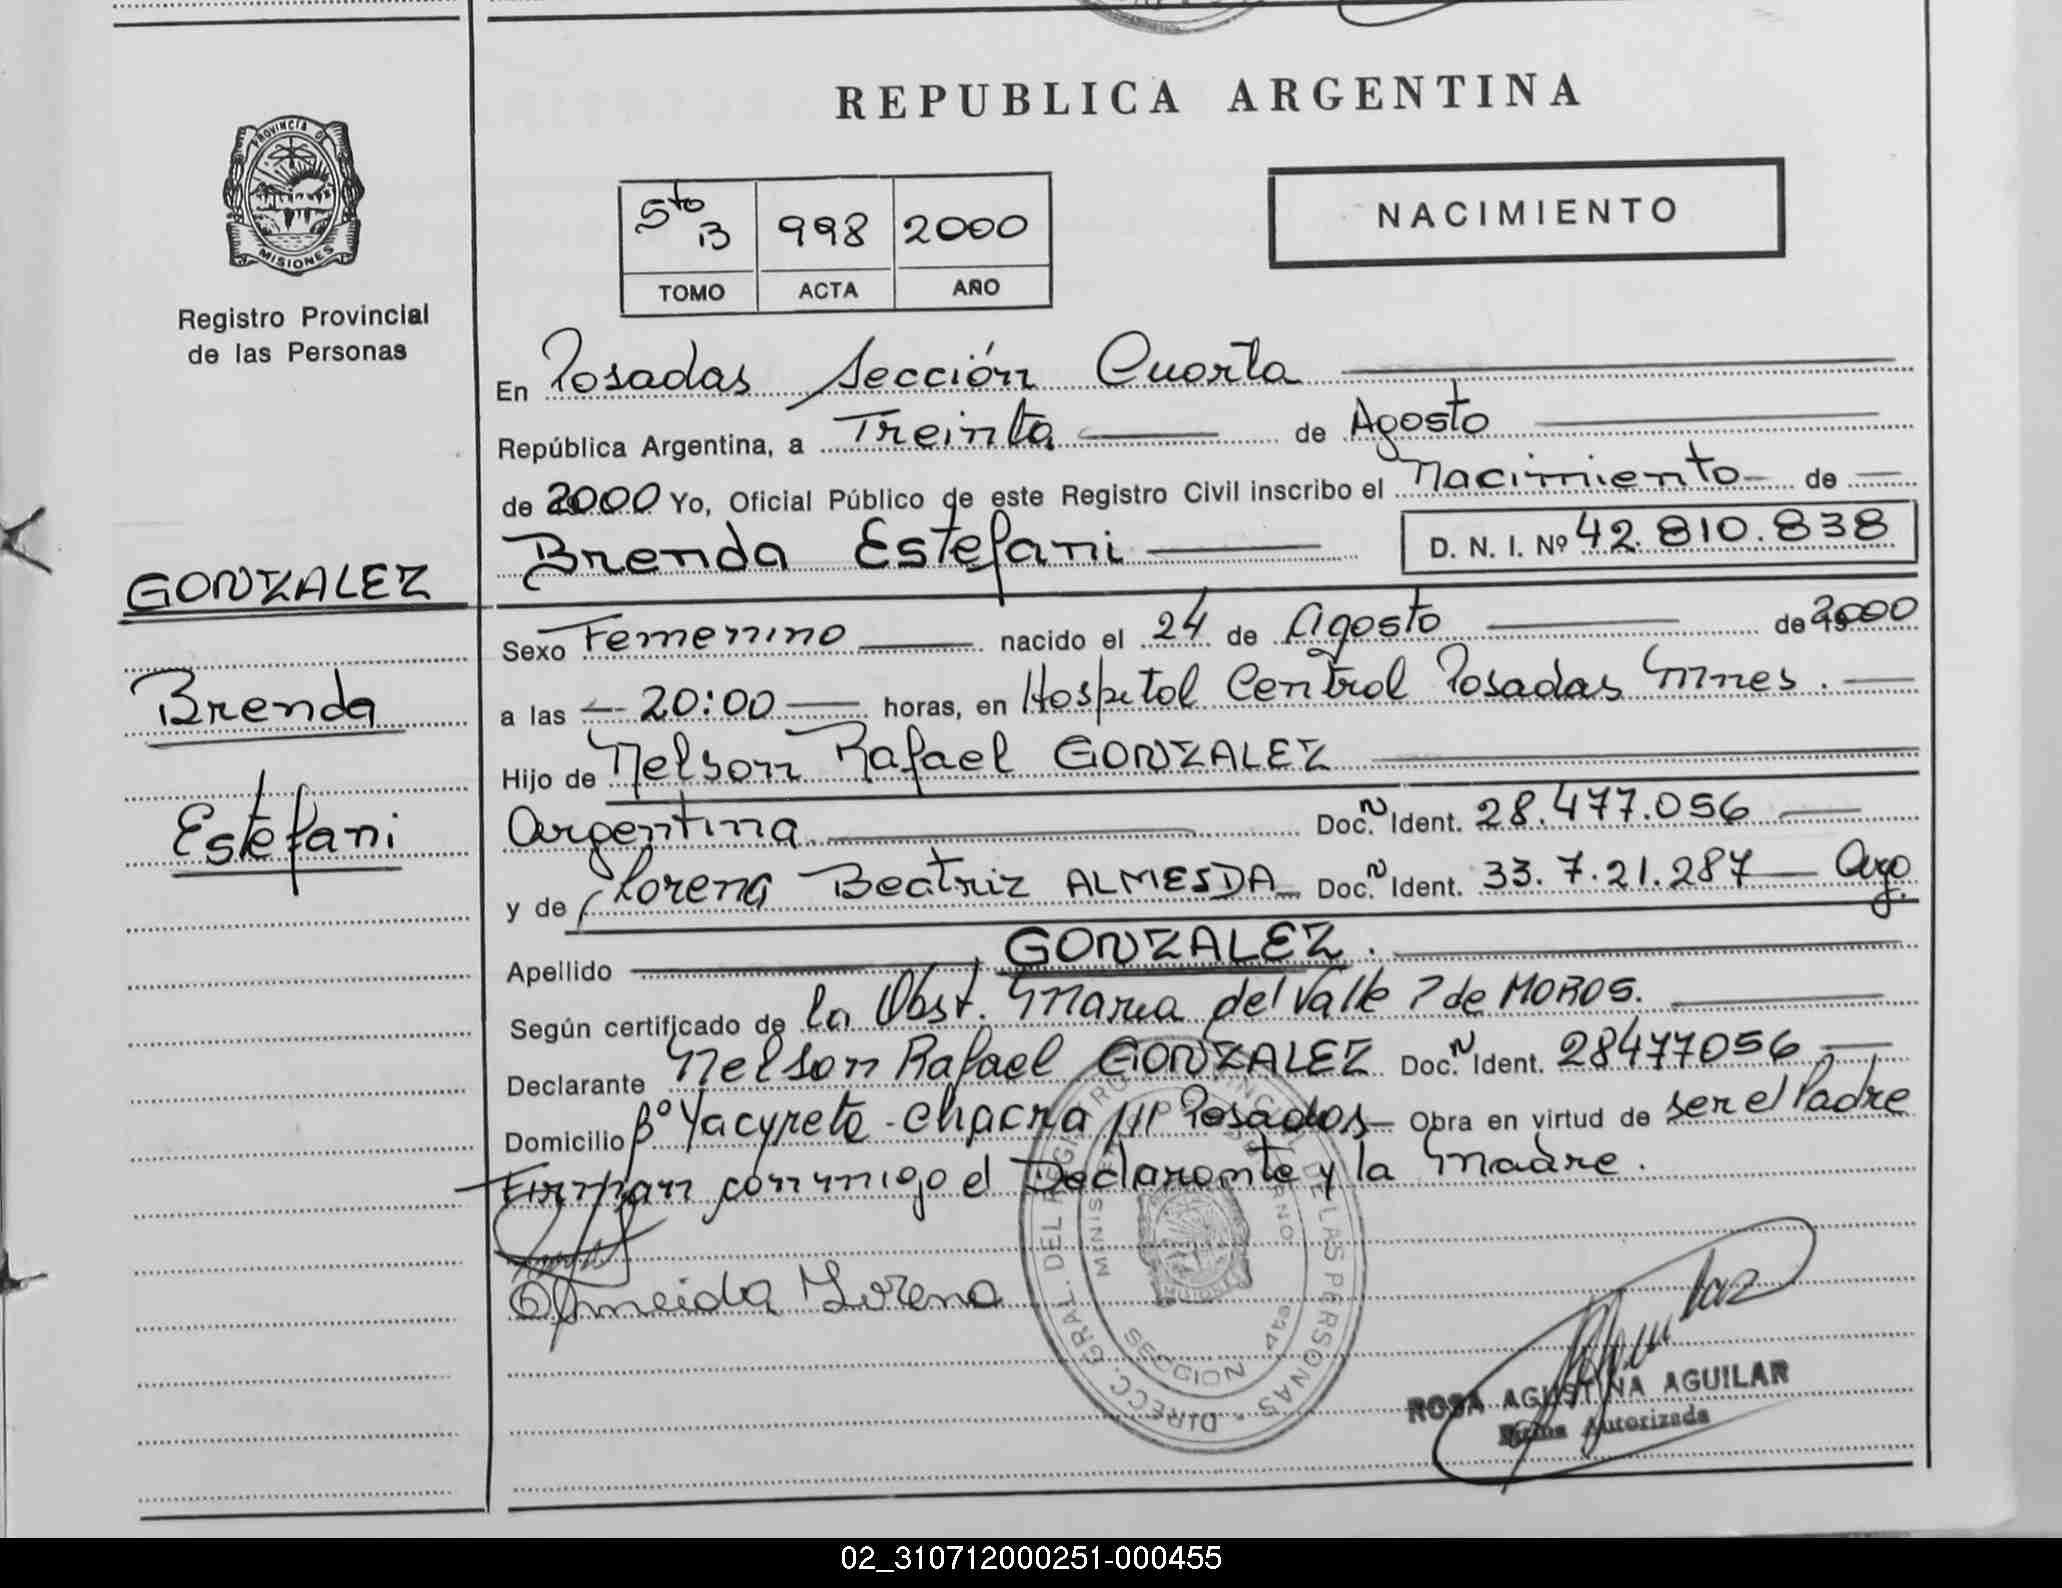 REPUBLICA ARGENTINA
PROVINCIA DE
MISIONES
Registro Provincial
de las Personas
NACIMIENTO
5to B 998 2000
TOMO ACTA AÑO
En Posadas Sección Cuarta
República Argentina, a Treinta de Agosto
de 2000 Yo, Oficial Público de este Registro Civil inscribo el Nacimiento de
Brenda Estefani D. N. I. Nº 42.810.838
GONZALEZ
Brenda
Estefani
Sexo Femenino nacido el 24 de Agosto de 2000
a las 20:00 horas, en Hospital Central Posadas Mnes.
Hijo de Nelson Rafael GONZALEZ
Argentina Doc. N Ident. 28.477.056
y de Lorena Beatriz ALMEIDA Doc. N Ident. 33.7.21.287 Arg.
Apellido GONZALEZ.
Según certificado de la Obst. Maria del Valle P de MOROS.
Declarante Nelson Rafael GONZALEZ Doc. N Ident. 28477056
Domicilio Bº Yacyreta - Chacra III Posadas Obra en virtud de ser el Padre
Firman conmigo el Declarante y la Madre.
Almeida Lorena
DIRECC. GRAL. DEL REGISTRO PROVINCIAL DE LAS PERSONAS
SECCION 4ta
ROSA AGUSTINA AGUILAR
Firma Autorizada
02_310712000251-000455